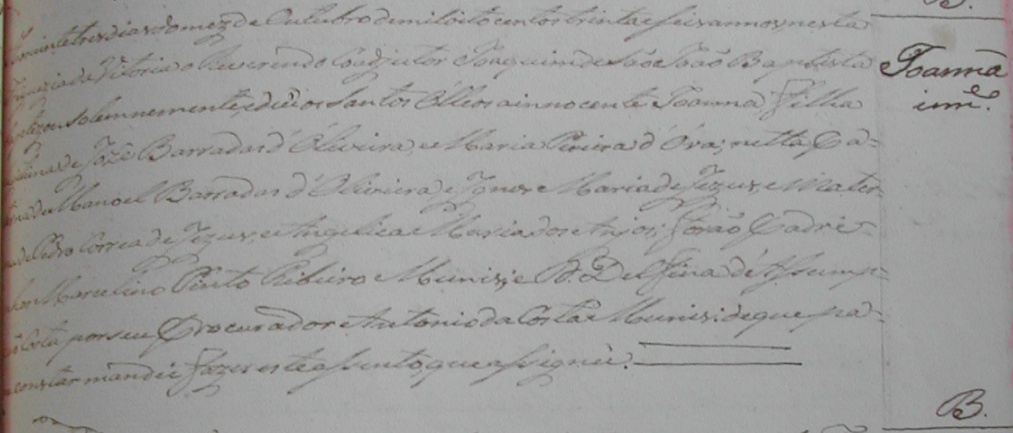 vinte tres dias do mez de Outubro de mil oito centos trinta e seis annos, nesta
Freguezia da Vitoria o Reverendo Coadjutor Joaquim de São João Baptista
baptizou solemnemente, e deu os Santos Olleos a innocente Joanna, filha
legitima de Jozé Barradas d'Oliveira, e Maria Pereira d'Ora; netta Pa-
terna de Manoel Barradas d'Oliveira e Ignes Maria de Jezus, e Mater-
na de Pedro Correa de Jezus, e Angelica Maria dos Anjos; forão Padri-
nhos Marcelino Pinto Ribeiro Munis, e D. Delfina d'Assump-
ção Costa por seu Procurador Antonio da Costa Munis: de que pa-
ra constar mandei fazer este assento, que assignei.
Joanna
inne.
B.